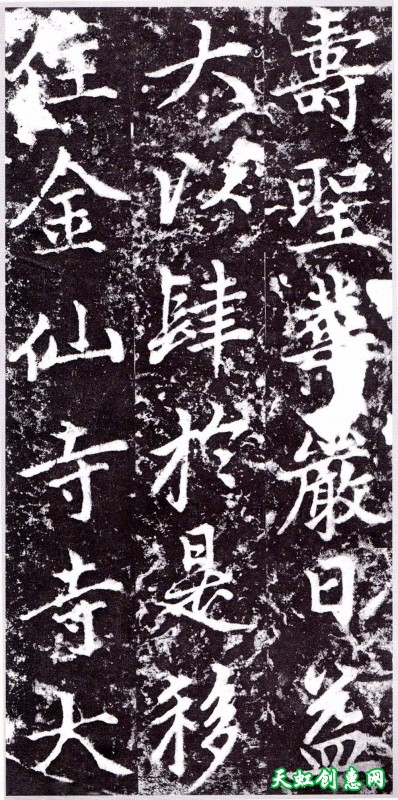 壽聖華嚴日益
大以肆於是移
住金仙寺寺大
天虹创惠网